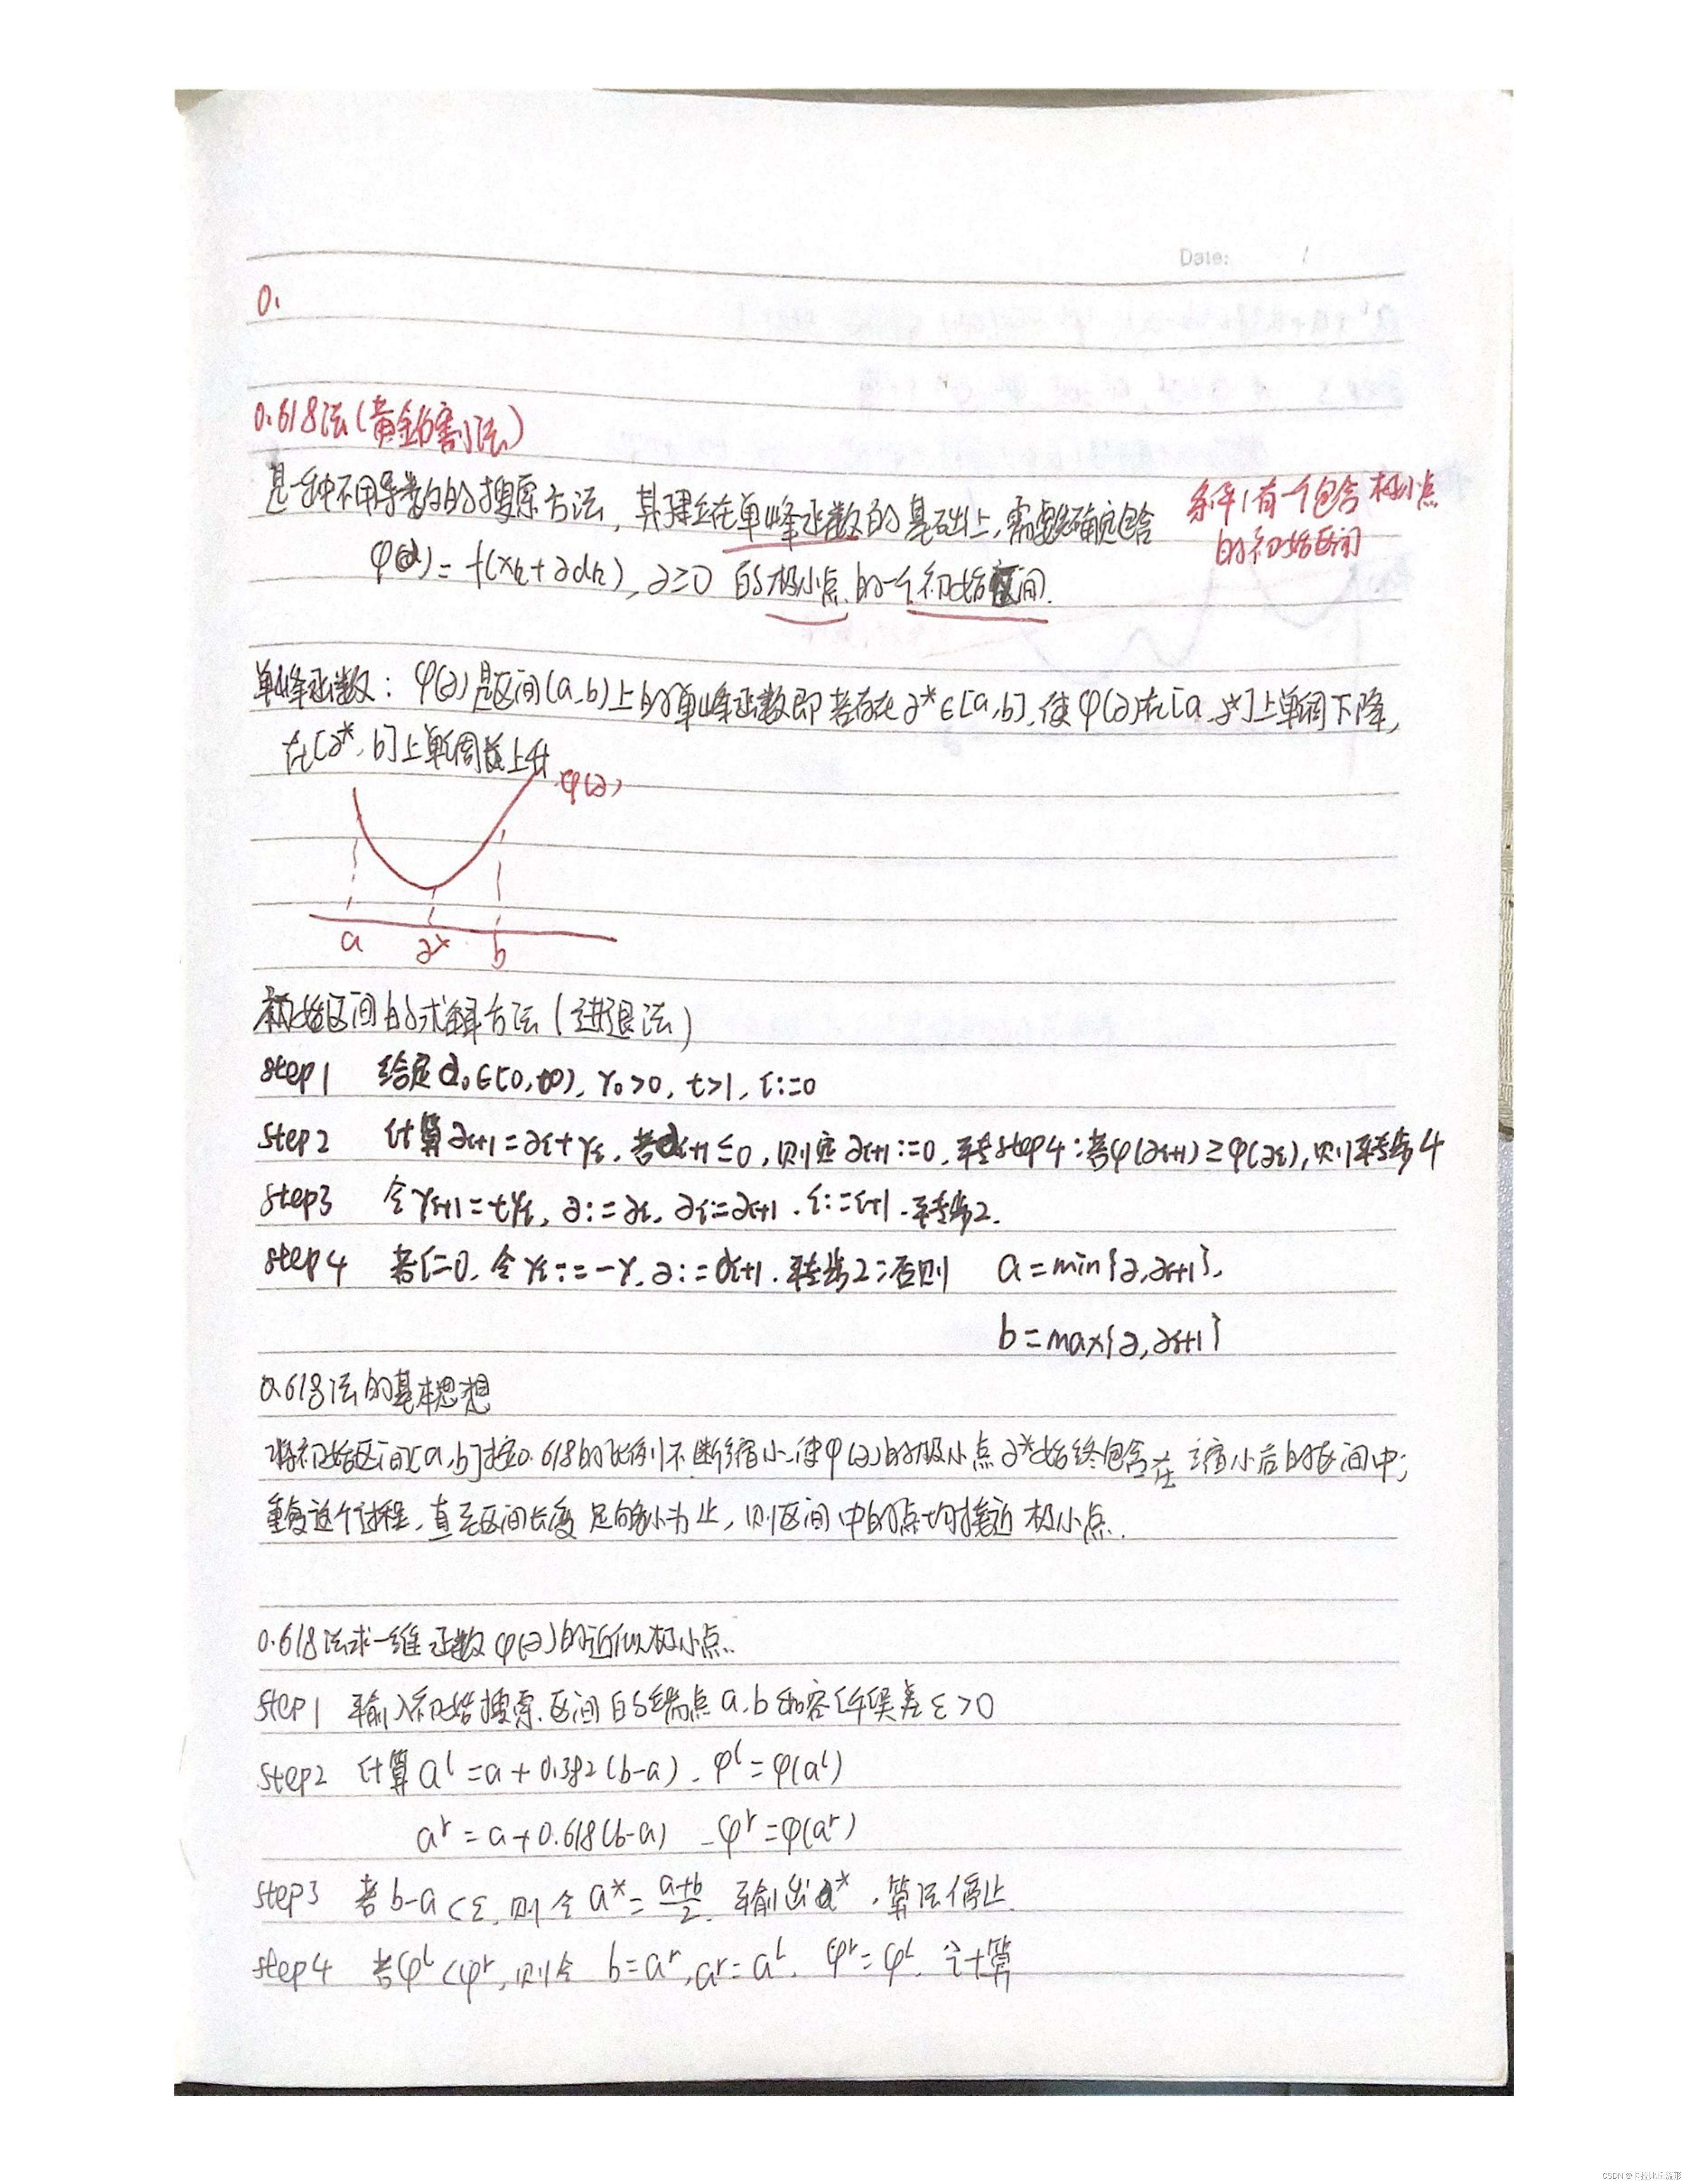 Date: /
0.
0.618法(黄金分割法)
是一种不用导数的搜索方法,其建立在单峰函数的基础上,需要确定包含
φ(α)=f(xk+αdk),α≥0 的极小点的一个初始区间.
条件1有一个包含极小点
的初始区间
单峰函数: φ(α)是区间(a,b)上的单峰函数即若存在α*∈[a,b],使φ(α)在[a,α*]上单调下降,
在[α*,b]上单调上升
φ(α)
a α* b
初始区间的求解方法(进退法)
step1 给定α0∈[0,+∞), γ0>0, t>1, i:=0
step2 计算αi+1=αi+γi,若αi+1≤0,则定αi+1:=0,转step4;若φ(αi+1)≥φ(αi),则转步4
step3 令γi+1=tγi, α:=αi, αi:=αi+1, i:=i+1,转步2.
step4 若i=0,令γi:=-γ,α:=αi+1,转步2;否则 a=min{α,αi+1},
b=max{α,αi+1}
0.618法的基本思想
将初始区间[a,b]按0.618的比例不断缩小,使φ(α)的极小点α*始终包含在缩小后的区间中;
重复这个过程,直至区间长度足够小为止,则区间中的点均接近极小点.
0.618法求一维函数φ(α)的近似极小点.
step1 输入初始搜索区间的端点a,b和容许误差ε>0
step2 计算aˡ=a+0.382(b-a), φˡ=φ(aˡ)
aʳ=a+0.618(b-a), φʳ=φ(aʳ)
step3 若b-a<ε,则令a*=(a+b)/2,输出a*,算法停止.
step4 若φˡ<φʳ,则令 b=aʳ,aʳ=aˡ, φʳ=φˡ, 计算
CSDN @卡拉比丘流形